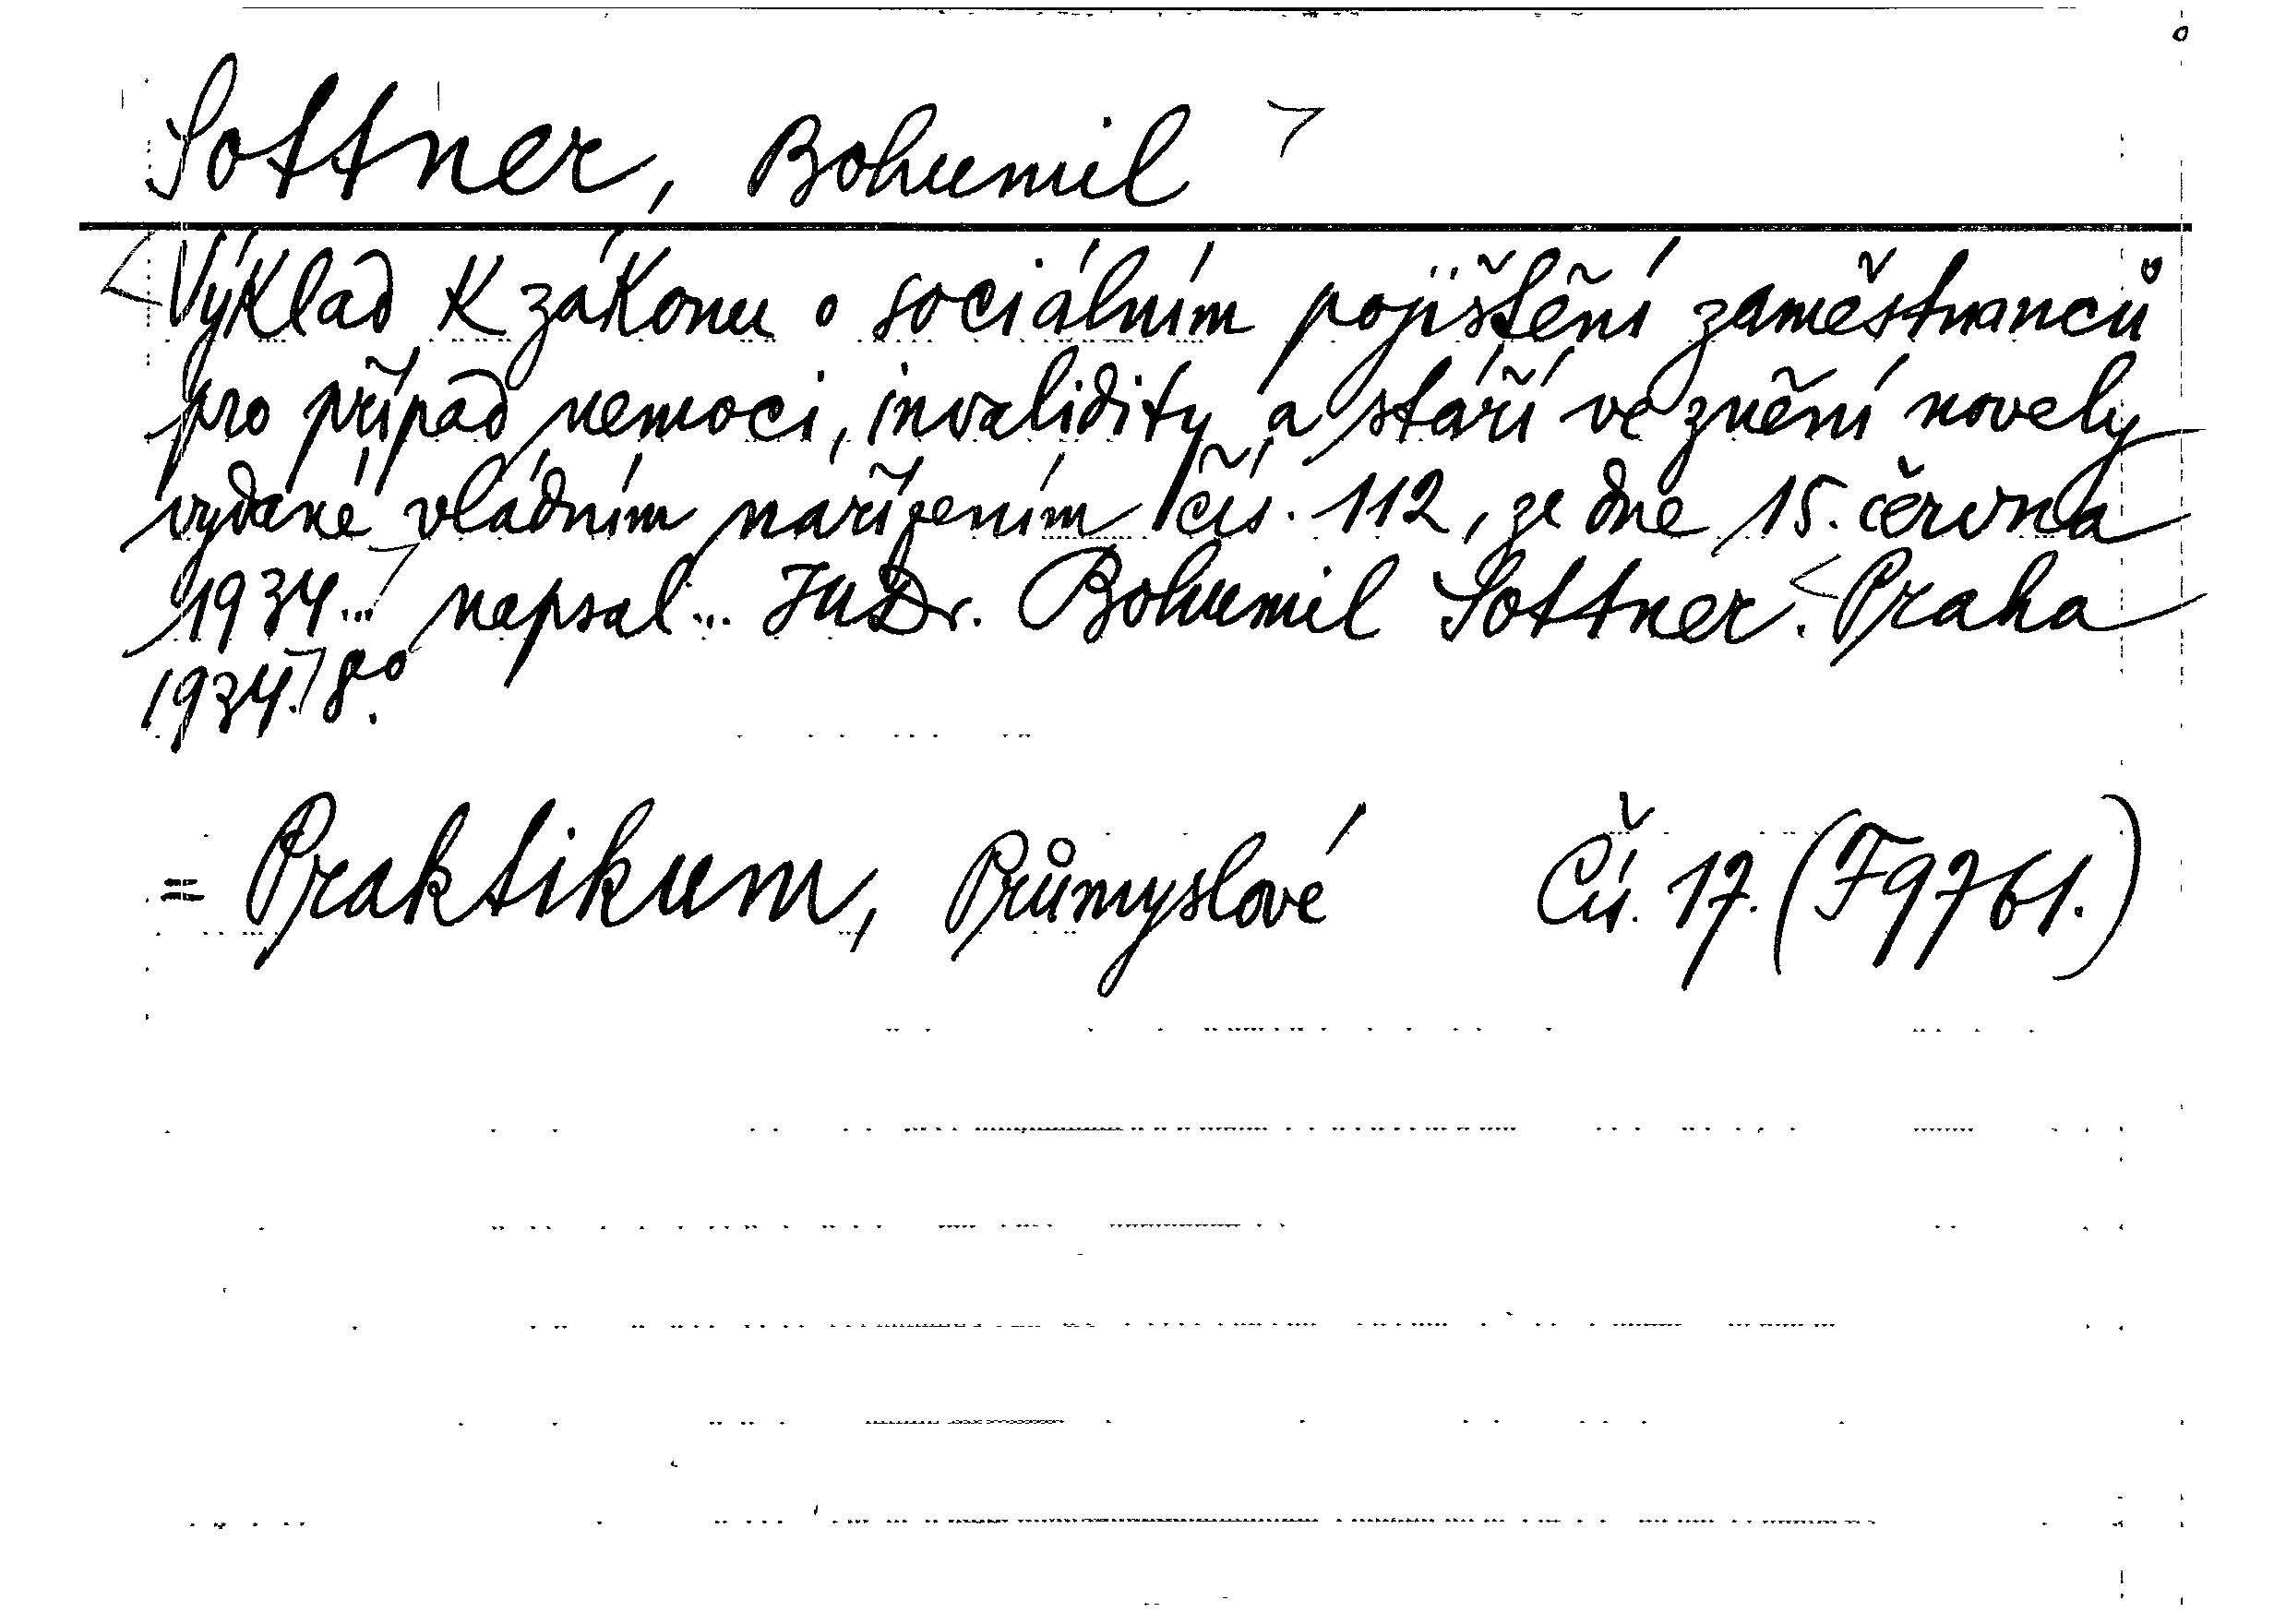 Sottner, Bohumil
Výklad k zákonu o sociálním pojištění zaměstnanců
pro případ nemoci, invalidity a stáří ve znění novely
vydané vládním nařízením čís. 112, ze dne 15. června
1934... napsal... JUDr. Bohumil Sottner. Praha
1934. 8°.
= Praktikum, Průmyslové Čís. 17. (F9761.)